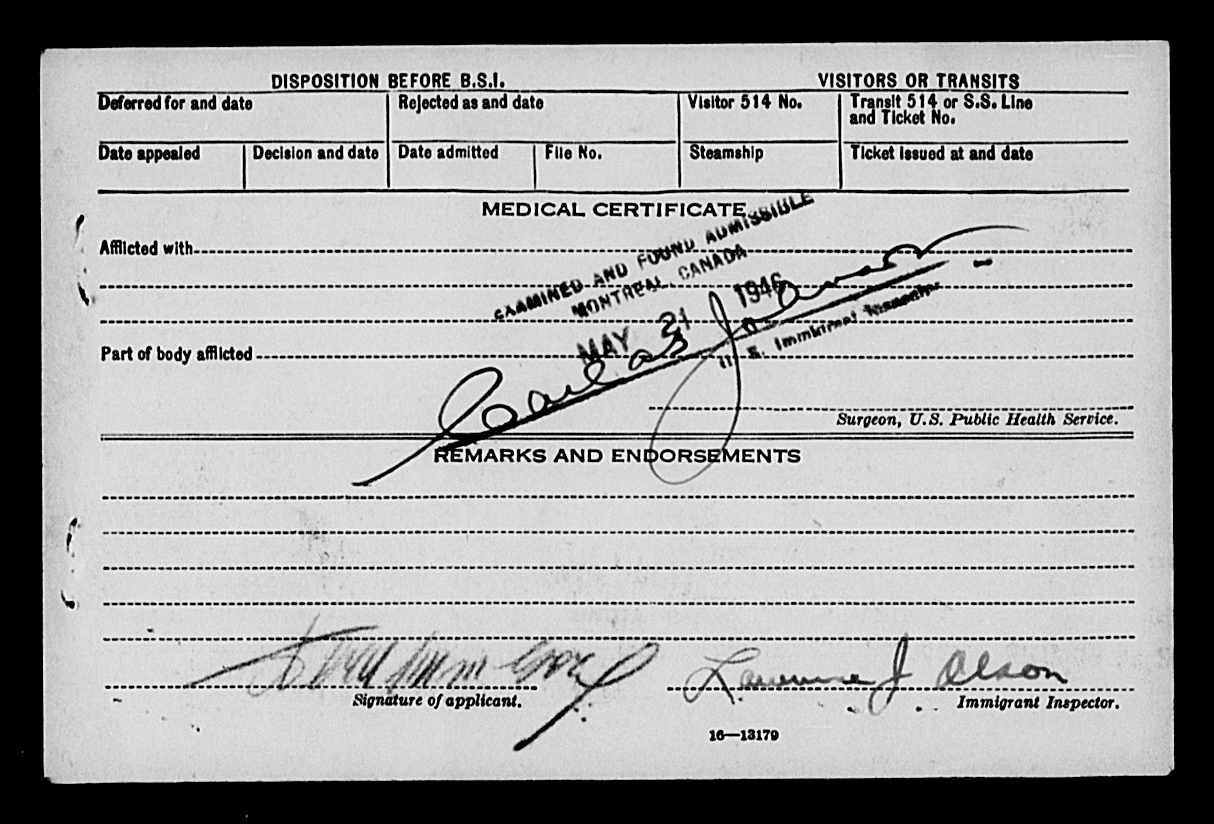 DISPOSITION BEFORE B.S.I.
VISITORS OR TRANSITS
Deferred for and date
Rejected as and date
Visitor 514 No.
Transit 514 or S.S. Line
and Ticket No.
Date appealed
Decision and date
Date admitted
File No.
Steamship
Ticket issued at and date
MEDICAL CERTIFICATE
Afflicted with
EXAMINED AND FOUND ADMISSIBLE
MONTREAL, CANADA
MAY 21 1946
U. S. Immigrant Inspector
Part of body afflicted
Surgeon, U.S. Public Health Service.
REMARKS AND ENDORSEMENTS
Lawrence J Olson
Signature of applicant.
Immigrant Inspector.
16—13179